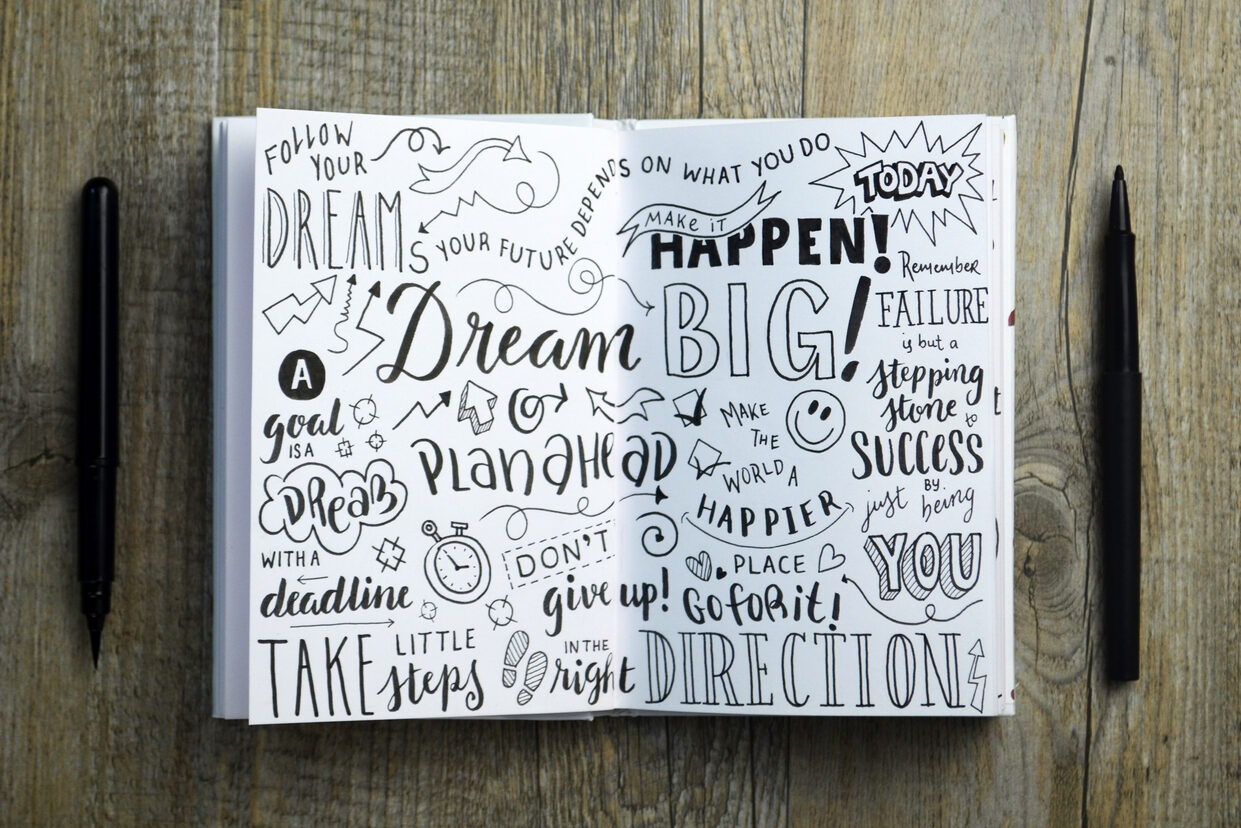 FOLLOW
YOUR
DREAMS
YOUR FUTURE DEPENDS ON WHAT YOU DO
TODAY
MAKE IT
HAPPEN!
Dream BIG!
Remember
FAILURE
is but a
stepping
stone to
SUCCESS
A
goal
IS A
DREAM
WITH A
deadline
PLAN AHEAD
MAKE
THE
WORLD A
HAPPIER
PLACE
just by being
YOU
DON'T
give up!
GO FOR it!
TAKE LITTLE
steps
IN THE
right DIRECTION